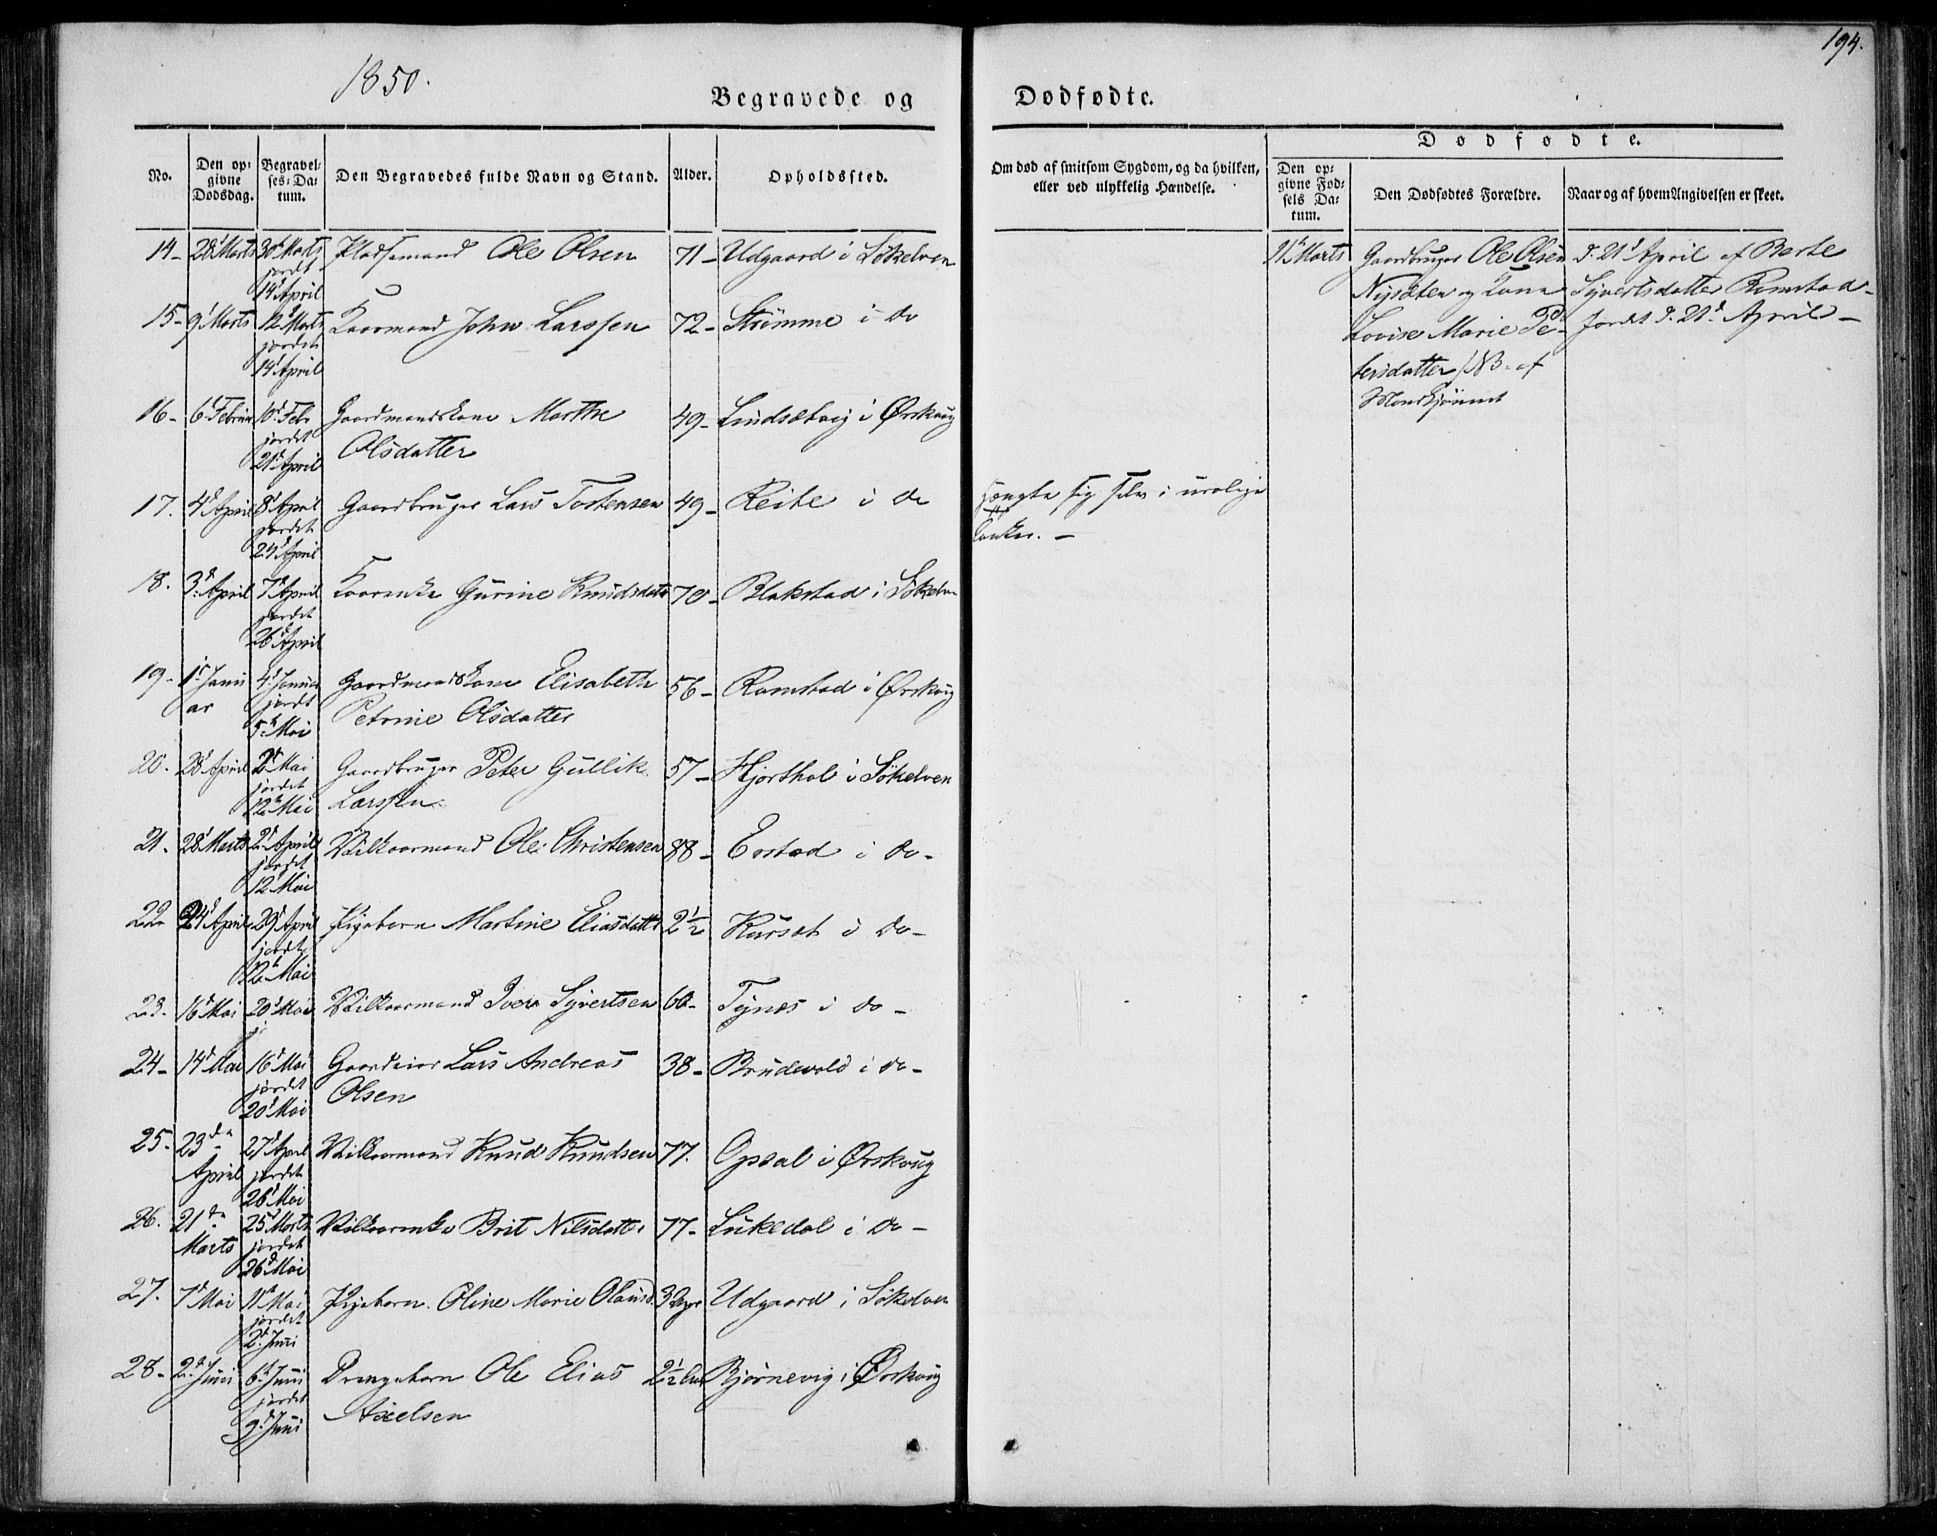 1850.
194.
Begravede og Dødfødte.
No.
Den opgivne Dødsdag.
Begravelses-Datum.
Den Begravedes fulde Navn og Stand.
Alder.
Opholdssted.
Om død af smitsom Sygdom, og da hvilken, eller ved ulykkelig Hændelse.
Dødfødte.
Den opgivne Fødsels Datum.
Den Dødfødtes Forældre.
Naar og af hvem Angivelsen er skeet.
14- 28 Marts 30 Marts jordet 14 April Pladsemand Ole Olsen 71- Udgaard i Søkelven
15- 9 Marts 12 Marts jordet 14 April Kaarmand John Larssen 72- Strømme i do
16- 6 Februar 10 Febr jordet 21 April Gaardmandskone Marthe
Olsdatter 49- Lindsætvig i Ørskoug
17. 4 April 8 April jordet 24 April Gaardbruger Lars Tostensen 49- Reite i do
hængte sig selv i urolige
tanker. -
18. 3 April 7 April jordet 26 April Kaarenke Gurine Knudsdatr 70- Blakstad i Søkelven
19- 1 Januar 4 Januar jordet 5 Mai Gaardmandskone Elisabeth
Petrine Olsdatter 56- Ramstad i Ørskoug
20. 28 April 2 Mai jordet 12 Mai Gaardbruger Peter Gullik
Larssen 57- Hjorthol i Søkelven
21. 28 Marts 2 April jordet 12 Mai Vilkaarmand Ole Christensen 88- Erstad i do-
22 24 April 29 April jordet 12 Mai Pigebarn Martine Eliasdattr 2½ Kurset i do-
23. 16 Mai 20 Mai Vilkaarmand Iver Syvertsen 60- Tynes i do-
24- 14 Mai 16 Mai jordet 20 Mai Gaardeier Lars Andreas
Olsen 38- Brudevold i do-
25- 23 April 27 April jordet 26 Mai Vilkaarmand Knud Knudsen 77. Opsal i Ørskoug
26. 21 Marts 25 Marts jordet 26 Mai Vilkaarenke Brit Nilsdatter 77- Lukedal i do-
27. 7 Mai 11 Mai jordet 2 Juni Pigebarn Oline Marie Olausd. 3 Dage Udgaard i Søkelven
28- 2 Juni 6 Juni jordet 9 Juni Drengebarn Ole Elias
Axelsen 2½ Bjørnevig i Ørskoug
21 Marts
Gaardbruger Ole Olsen
Nysæten og Kone
Lovise Marie Pe-
tersdatter / NB. af
Mandkjønnet
d. 21 April af Berte
Syvertsdatter Ramstad-
Jordet d. 21 April-